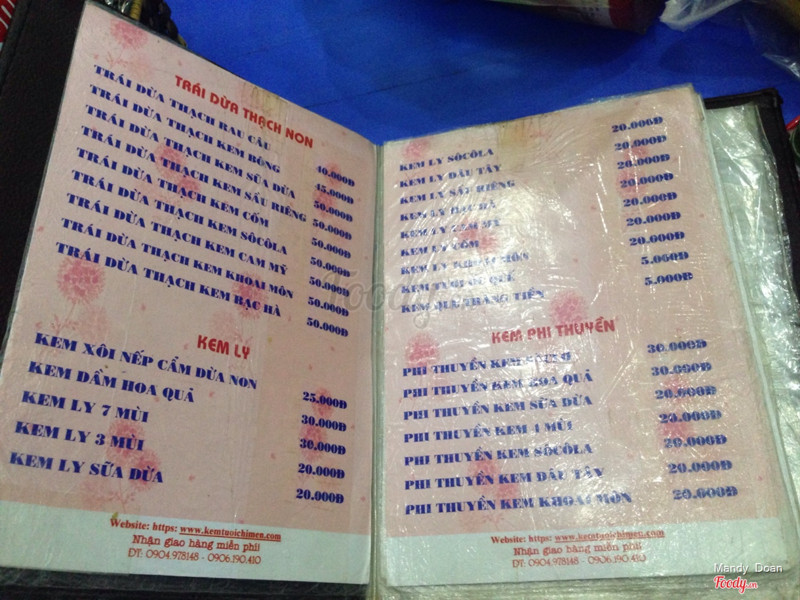 TRÁI DỪA THẠCH NON
TRÁI DỪA THẠCH RAU CÂU 40.000Đ
TRÁI DỪA THẠCH KEM BÔNG 45.000Đ
TRÁI DỪA THẠCH KEM SỮA DỪA 50.000Đ
TRÁI DỪA THẠCH KEM SẦU RIÊNG 50.000Đ
TRÁI DỪA THẠCH KEM CỐM 50.000Đ
TRÁI DỪA THẠCH KEM SÔCÔLA 50.000Đ
TRÁI DỪA THẠCH KEM CAM MỸ 50.000Đ
TRÁI DỪA THẠCH KEM KHOAI MÔN 50.000Đ
TRÁI DỪA THẠCH KEM BẠC HÀ 50.000Đ
KEM LY
KEM XÔI NẾP CẨM DỪA NON 25.000Đ
KEM DẦM HOA QUẢ 30.000Đ
KEM LY 7 MÙI 30.000Đ
KEM LY 3 MÙI 20.000Đ
KEM LY SỮA DỪA 20.000Đ
Website: https: www.kemtuoichimen.com
Nhận giao hàng miễn phí!
ĐT: 0904.978148 - 0906.190.410
KEM LY SÔCÔLA 20.000Đ
KEM LY DÂU TÂY 20.000Đ
KEM LY SẦU RIÊNG 20.000Đ
KEM LY BẠC HÀ 20.000Đ
KEM LY CAM MỸ 20.000Đ
KEM LY CỐM 20.000Đ
KEM LY 20.000Đ
KEM TƯƠI ỐC QUẾ 5.000Đ
KEM TIỀN 5.000Đ
KEM PHI THUYỀN
PHI THUYỀN KEM 30.000Đ
PHI THUYỀN KEM HOA QUẢ 30.000Đ
PHI THUYỀN KEM SỮA DỪA 20.000Đ
PHI THUYỀN KEM 4 MÙI 25.000Đ
PHI THUYỀN KEM SÔCÔLA 20.000Đ
PHI THUYỀN KEM DÂU TÂY 20.000Đ
PHI THUYỀN KEM KHOAI MÔN 20.000Đ
Website: https: www.kemtuoichimen.com
Nhận giao hàng miễn phí!
ĐT: 0904.978148 - 0906.190.410
Foody.vn
Mandy Doan
Foody.vn